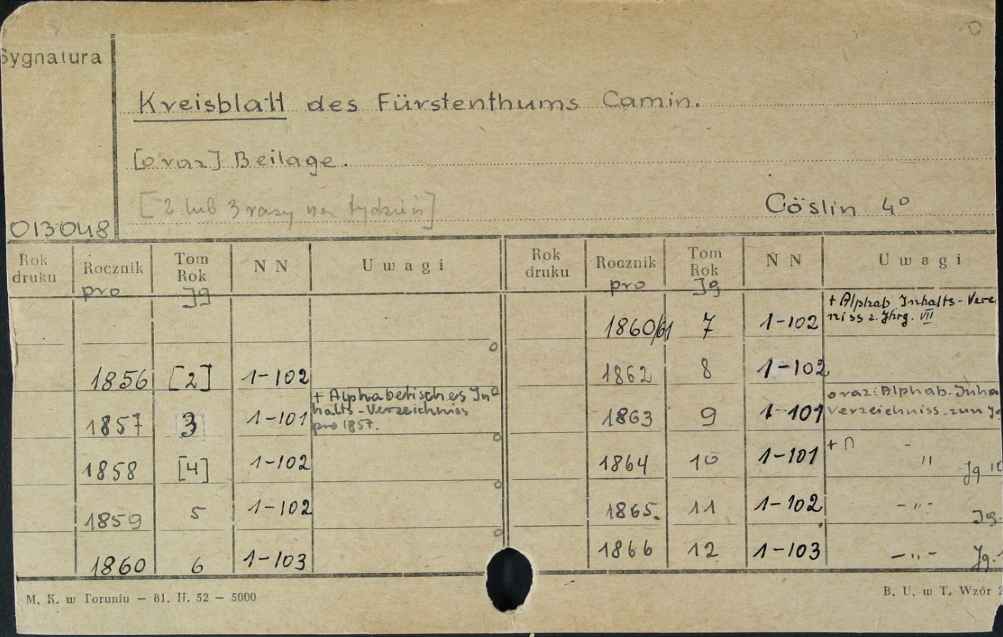 Sygnatura
Kreisblatt des Fürstenthums Camin.
[oraz] Beilage.
[2 lub 3 razy na tydzień]
Cöslin 4°
013048
Rok druku Rocznik pro Tom Rok Jg N N Uwagi
1856 [2] 1-102
1857 3 1-101 + Alphabetisches In-
halts-Verzeichniss
pro 1857.
1858 [4] 1-102
1859 5 1-102
1860 6 1-103
Rok druku Rocznik pro Tom Rok Jg N N Uwagi
1860/61 7 1-102 + Alphab. Inhalts-Verz
niss z. Jhrg. VII
1862 8 1-102
1863 9 1-101 oraz: Alphab. Inha
Verzeichniss. zum J
1864 10 1-101 + - " Jg 10
1865. 11 1-102 -"- Jg.
1866 12 1-103 -"- Jg.
M. K. w Toruniu - 61. H. 52 - 5000
B. U. w T. Wzór